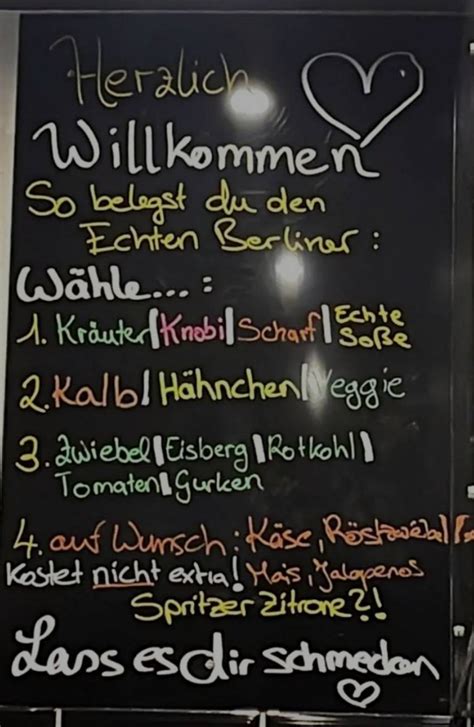 Herzlich
Willkommen
So belegst du den
Echten Berliner :
Wähle... :
1. Kräuter | Knobi | Scharf | Echte Soße
2. Kalb | Hähnchen | Veggie
3. Zwiebel | Eisberg | Rotkohl |
Tomaten | Gurken
4. auf Wunsch : Käse, Röstzwiebel
Kostet nicht extra! Mais, Jalapenos
Spritzer Zitrone?!
Lass es dir schmecken